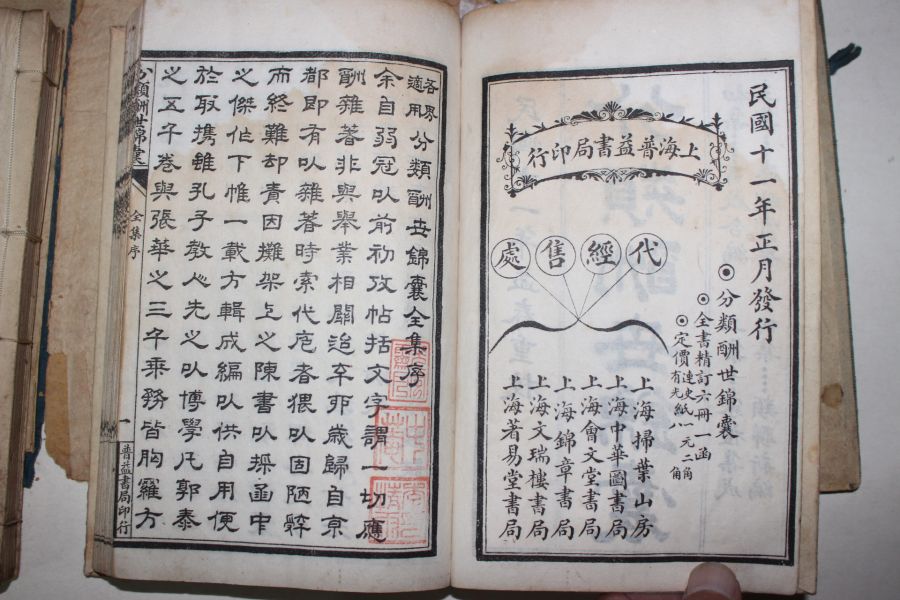 民國十一年正月發行
上海普益書局印行
◉分類酬世錦囊
◉全書精訂六冊一函
◉定價連史紙一元二角
有光紙八角
代經售處
上海掃葉山房
上海中華圖書局
上海會文堂書局
上海錦章書局
上海文瑞樓書局
上海著易堂書局
各界適用分類酬世錦囊全集序
余自弱冠以前初攻帖括文字謂一切應
酬雜著非與舉業相關迨辛卯歲歸自京
都即有以雜著時索代庖者猥以固陋辭
而終難却責因攤架上之陳書以採函中
之傑作下帷一載方輯成編以供自用便
於取携雖孔子教人先之以博學凡郭泰
之五千卷與張華之三千乘務皆胸羅方
分類酬世錦囊
全集序
一
普益書局印行